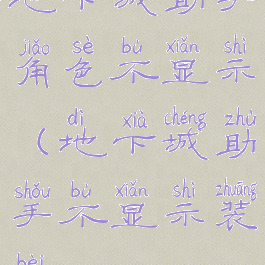 地下城助手
jiǎo sè bù xiǎn shì
角色不显示
dì xià chéng zhù
(地下城助
shǒu bù xiǎn shì zhuāng
手不显示装
bèi